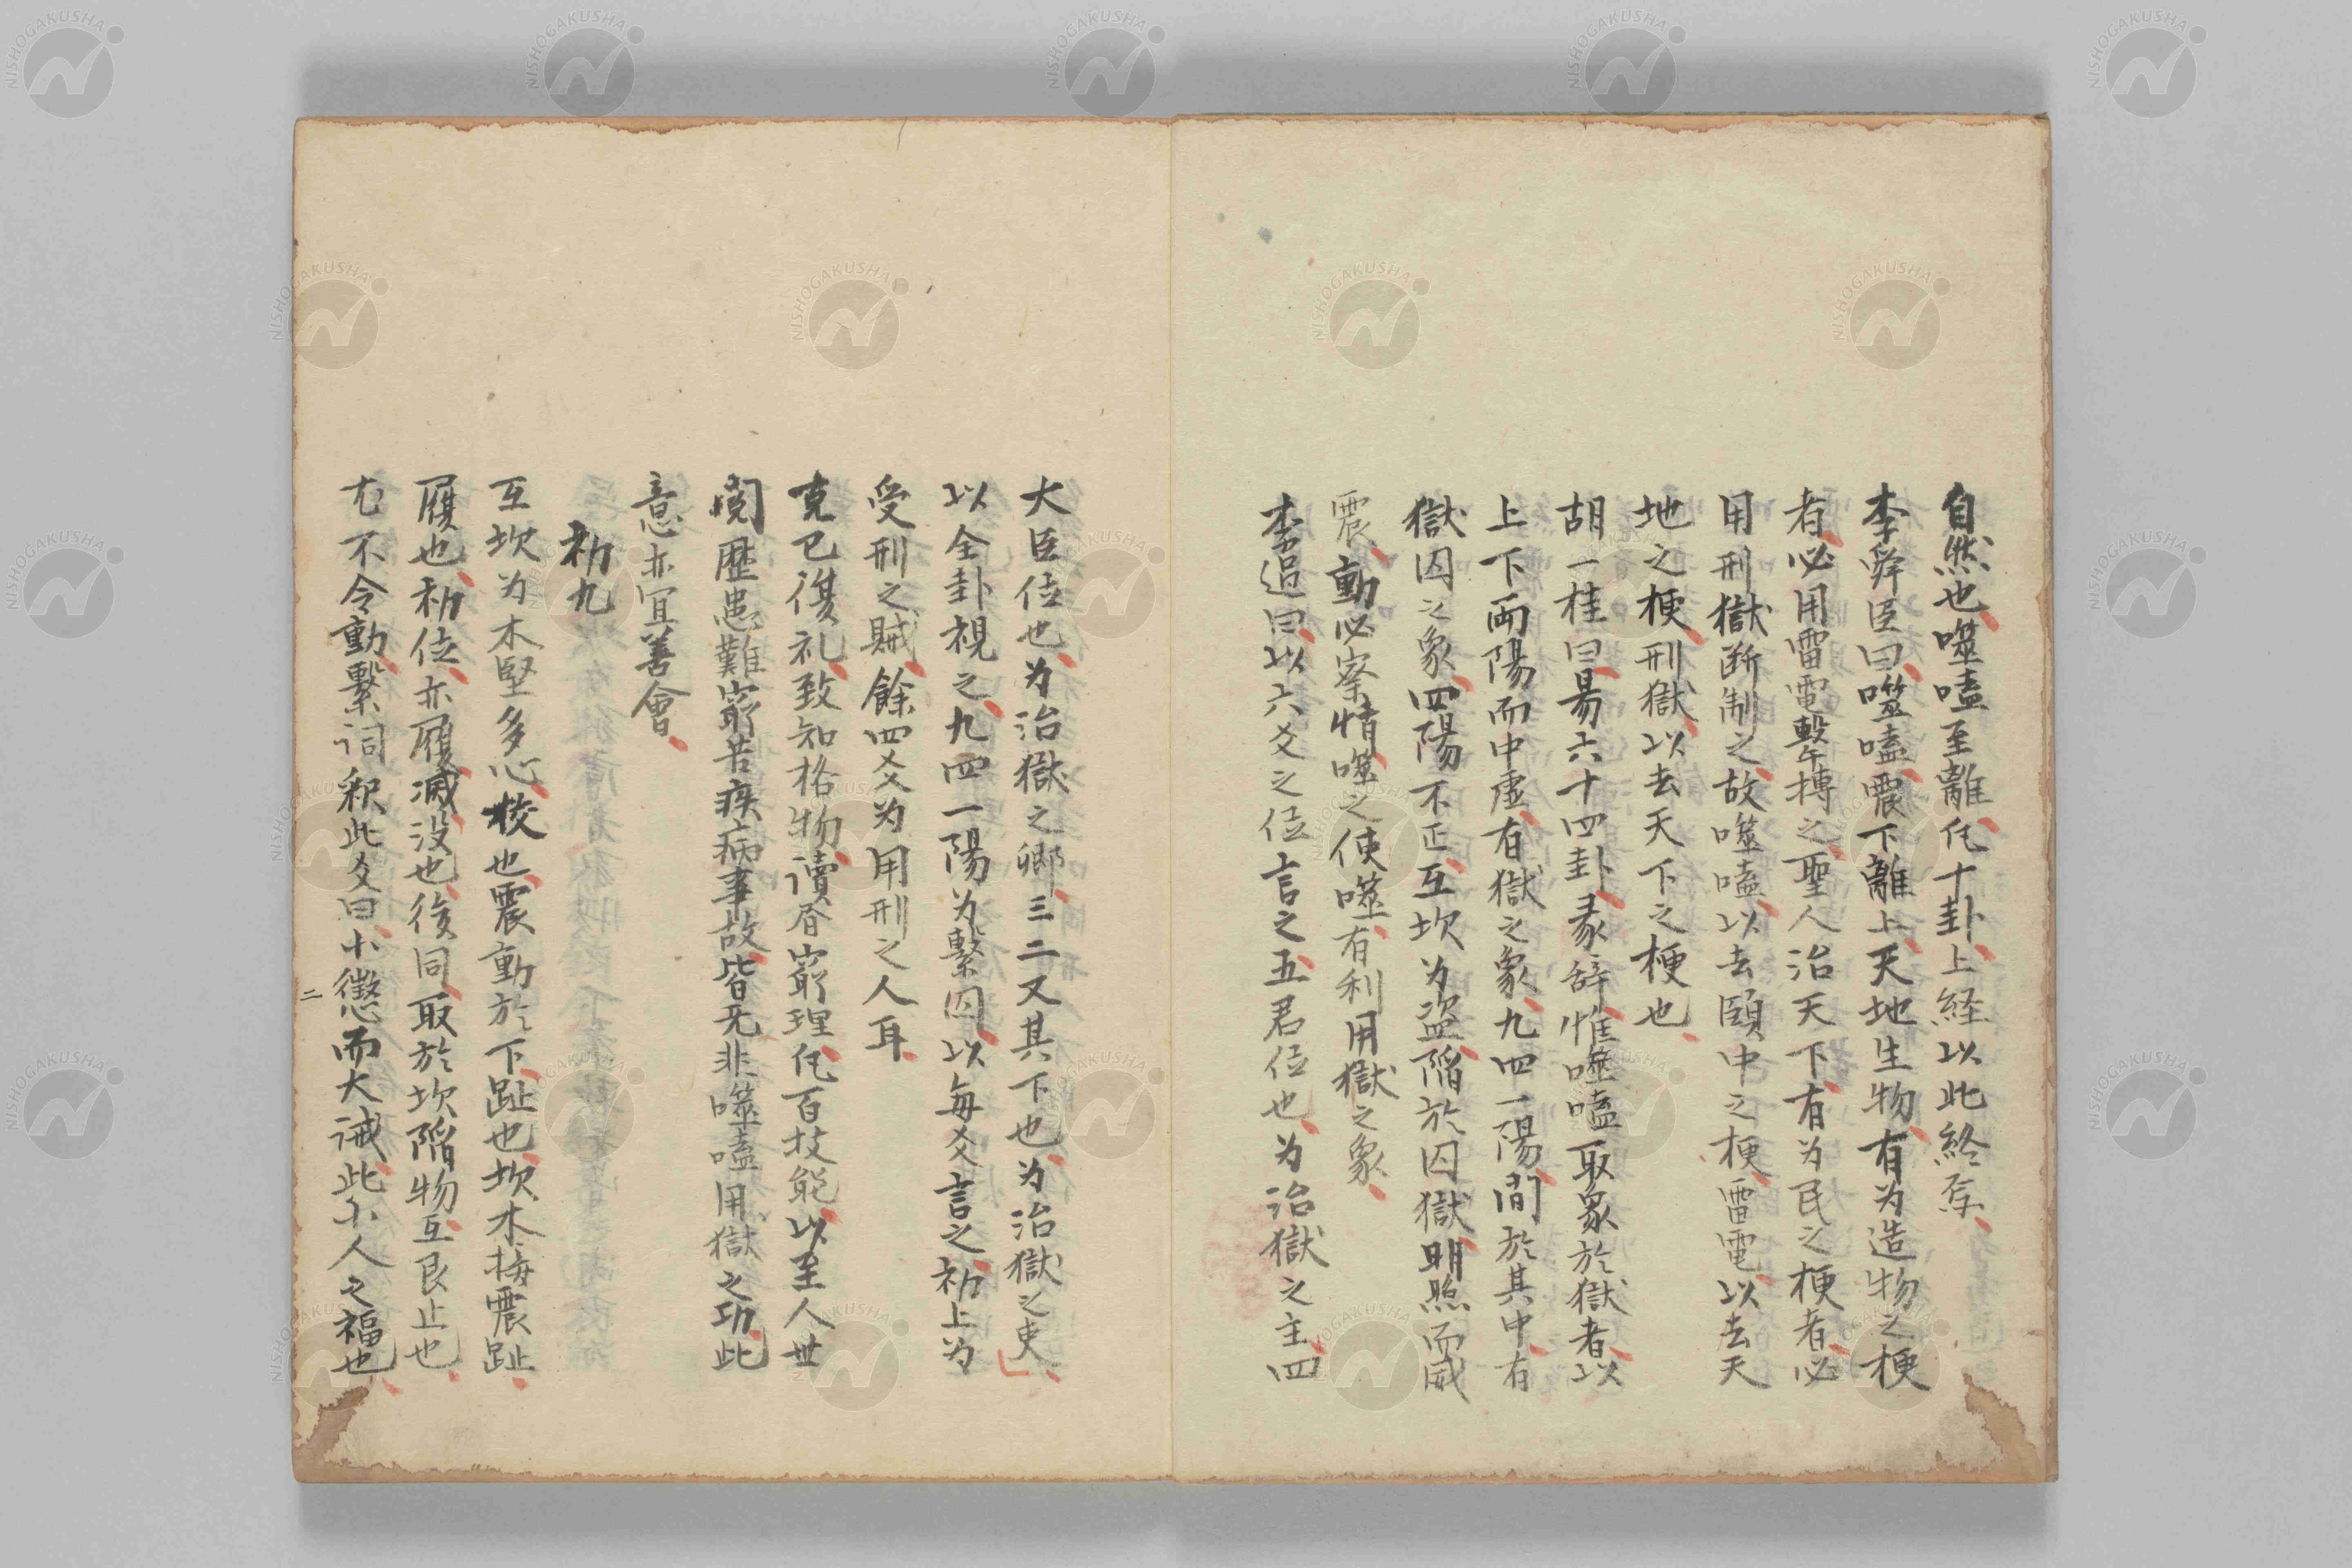 自然也噬嗑至離凢十卦上経以此終焉
李舜臣曰噬嗑震下離上天地生物有为造物之梗
者必用雷電擊搏之聖人治天下有为民之梗者必
用刑獄断制之故噬嗑以去頤中之梗雷電以去天
地之梗刑獄以去天下之梗也
胡一桂曰易六十四卦彖辞惟噬嗑取象於獄者以
上下両陽而中虚有獄之象九四一陽間於其中有
獄囚之象四陽不正互坎为盗陥於囚獄明照而威
震動必察情噬之使噬有利用獄之象
李過曰以六爻之位言之五君位也为治獄之主四
大臣位也为治獄之卿三二又其下也为治獄之吏
以全卦視之九四一陽为繫囚以每爻言之初上为
受刑之賊餘四爻为用刑之人耳
克己復礼致知格物讀
窮理凢百技能以至人世
閲歴患難窮苦疾病事故皆无非噬嗑用獄之功此
意亦宜善會
初九
互坎为木堅多心校也震動於下趾也坎木
震趾
履也初位亦履滅没也後同取於坎陥物互艮止也
尢不令動繫詞釈此爻曰小懲而大誡此小人之福也
二
NISHOGAKUSHA